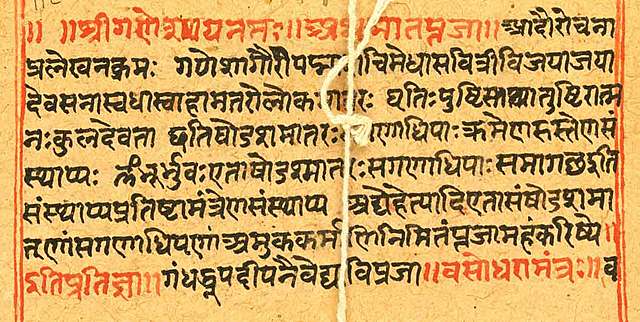 ॥ ॥ श्रीगणेशायनमः ॥ अथ मातृपूजा ॥ आदौरोचना
प्रलेखनक्रमः गणेशागौरीपद्मा चिमेधासवित्रीविजयाजया
देवसनास्वधास्वाहामातरोलोकमातरः धृतिःपुष्टिस्तथातुष्टिरात्म
नःकुलदेवता इतिषोडशमातरः गणाधिपाः क्रमेणहस्तेणसं
स्थाप्यः ॐभूर्भुवःएताषोडशमातरःसगणाधिपाःसमागछइति
संस्थाप्यप्रतिष्टामंत्रेणसंस्थाप्य अद्येहेत्यादिएतासंषोडशमा
तृणांसगणाधिपणां अमुककर्माणिनिमितंपूजामहंकरिष्ये॥
इतिप्रतिज्ञा॥ गंधधूपदीपनैवेद्यविप्रजा॥ वसोधरामंत्रः॥ व